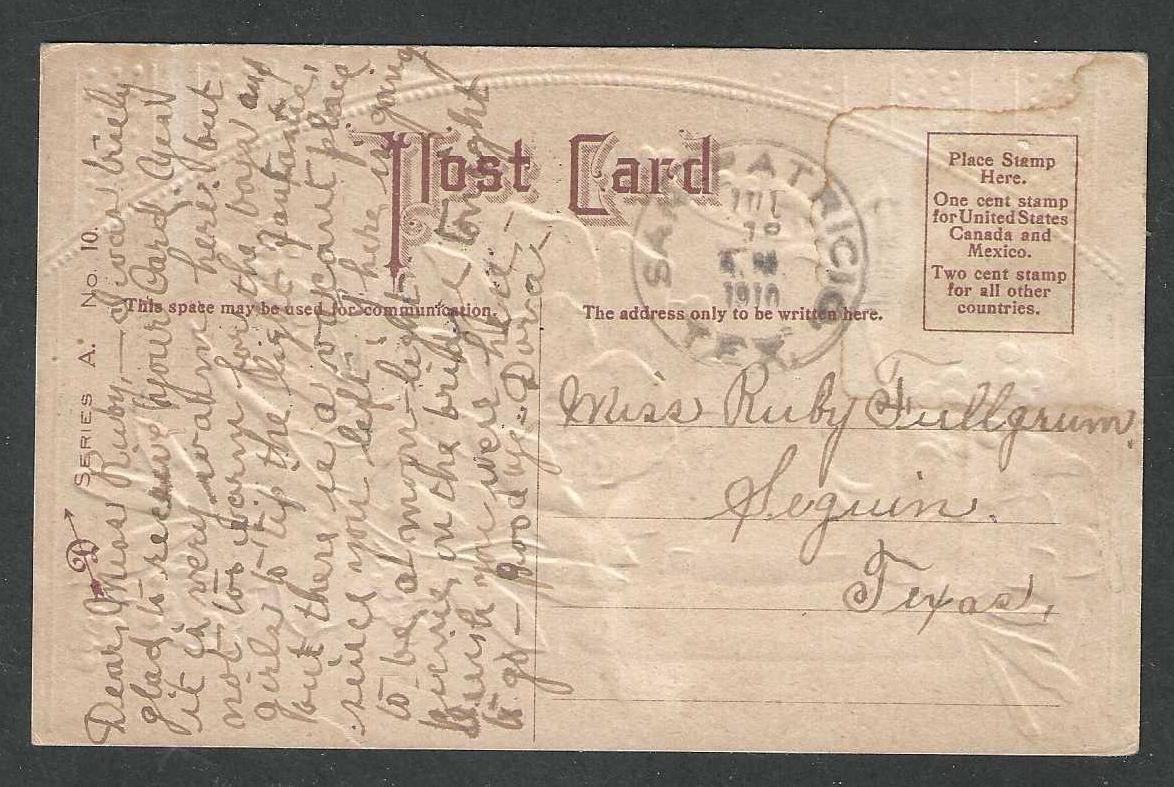 SERIES A. No. 10.
Post Card
This space may be used for communication.
The address only to be written here.
Place Stamp
Here.
One cent stamp
for United States
Canada and
Mexico.
Two cent stamp
for all other
countries.
SAN PATRICIO
JUL
1910
TEX.
Dear Miss Ruby,— I was
glad to receive your Card. Yes
it is very warm here. but
not too warm for the boys and
girls to tip the light
but there is a vacant place
since you left, here is going
to be a moon-light
picnic on the bridge tonight
wish you were here —
to go — good bye. Dora
Miss Ruby Fullgrum
Seguin.
Texas.